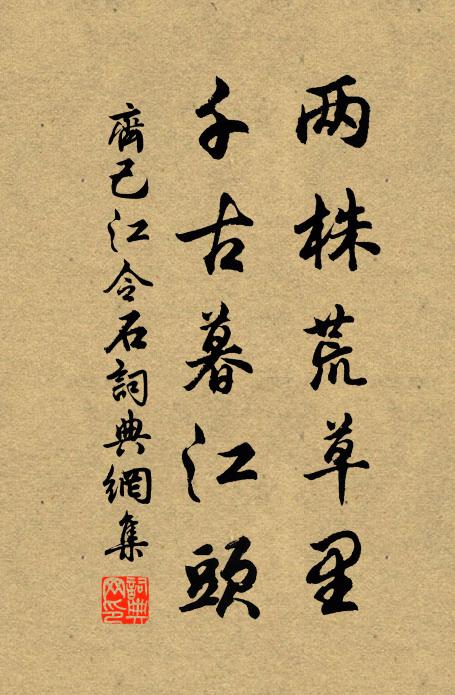 两株荒草里
千古暮江頭
齊己江令石詞典網集
詞典网印